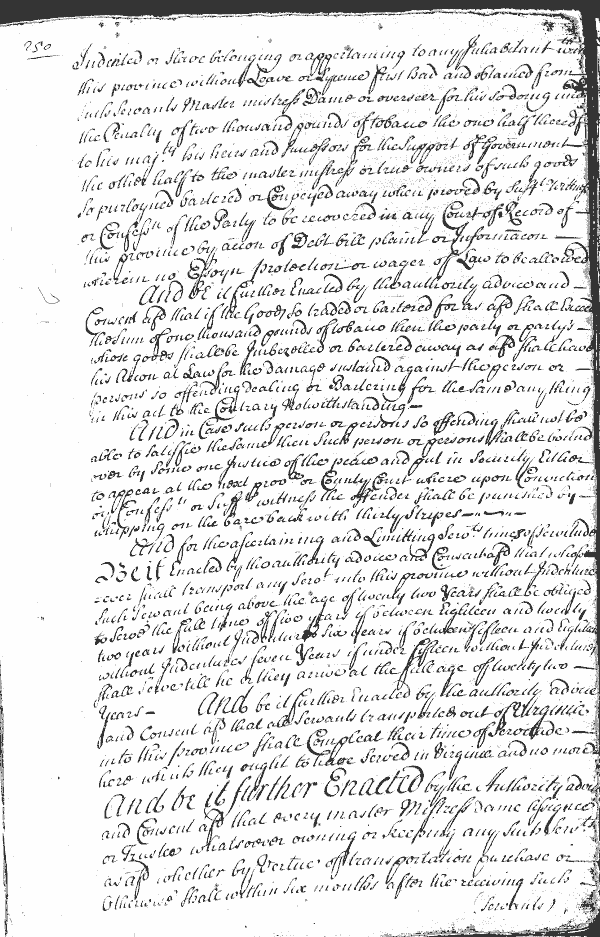 250
Indented or Slave belonging or appertaining to any Inhabitant wth in
this province without Leave or Lycence first had and obtained from
such Servants Master mistress Dame or overseer for his so doing under
the Penalty of two thousand pounds of tobacco the one half thereof
to his maj.ty his heirs and Successors for the Support of Government
the other half to the master mistress or true owners of such goods
so purloyned bartered or Conveyed away when proved by Suff.t Wittness
or Confess.n of the Party to be recovered in any Court of Record of
this province by accon of Debt bill plaint or Informacon
wherein no Essoyn protection or wager of Law to be allowed
And be it further Enacted by the authority advice and
Consent afd that if the Goods so traded or bartered for as afd shall Exceed
the sum of one thousand pounds of tobacco then the party or partys
whose goods shall be Imbezelled or bartered away as afd shall have
his accon at Law for the damage sustaind against the person or
persons so offending dealing or Bartering for the same any thing
in this act to the Contrary Notwithstanding
And in Case such person or persons so offending shall not be
able to satisfie the same then such person or persons shall be bound
over by some one Justice of the peace and put in Security Either
to appear at the next prov.ll or County Court where upon Conviction
by Confess.n or Suff.t wittness the offender shall be punished by
whipping on the bare back with thirty Stripes
And for the ascertaining and Limitting Serv.ts times of servitude
Be it Enacted by the authority advice and Consent afd that whoso
=ever shall transport any Serv.t into this province without Indenture
such Servant being above the age of twenty two years shall be obliged
to serve the full time of five years if between Eighteen and twenty
two years without Indentures Six years if between fifteen and Eighteen
without Indentures seven Years if under fifteen without Indentures
shall serve till he or they arrive at the full age of twenty two
years And be it further Enacted by the authority advice
and Consent afd that all Servants transported out of Virginia
into this province shall Compleat their time of servitude
here which they ought to have served in Virginia and no more
And be it further Enacted by the Authority advice
and Consent afd that every master Mistress Dame assignee
or Trustee whatsoever owning or keeping any such Serv.ts
as afd whether by Vertue of transportation purchase or
Otherwise shall within six months after the receiving such
(Servants)